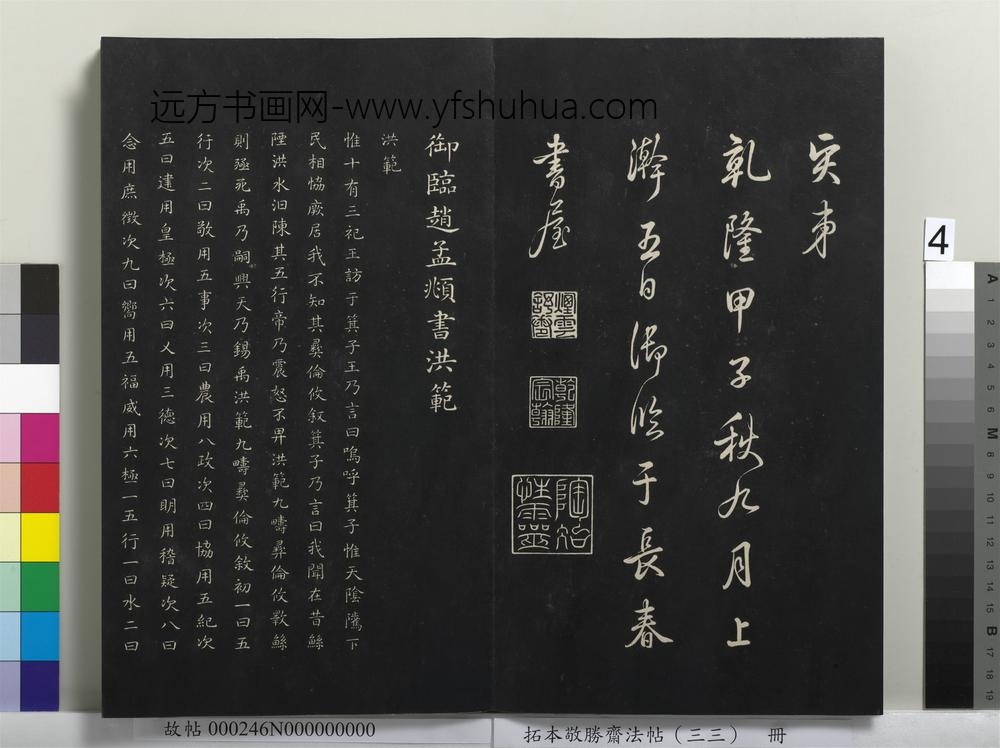 远方书画网-www.yfshuhua.com
乾隆甲子秋九月上
澣五日御臨于長春
書屋
烟雲
舒卷
乾隆
宸翰
陶冶
性靈
御臨趙孟頫書洪範
洪範
惟十有三祀王訪于箕子王乃言曰嗚呼箕子惟天陰隲下
民相恊厥居我不知其彝倫攸叙箕子乃言曰我聞在昔鯀
陻洪水汩陳其五行帝乃震怒不畀洪範九疇彝倫攸斁鯀
則殛死禹乃嗣興天乃錫禹洪範九疇彝倫攸敘初一曰五
行次二曰敬用五事次三曰農用八政次四曰協用五紀次
五曰建用皇極次六曰乂用三德次七曰明用稽疑次八曰
念用庶徵次九曰嚮用五福威用六極一五行一曰水二曰
4
A 1 2 3 4 5 6 M 8 9 10 11 12 13 14 15 B 17 18 19
故帖 000246N000000000
拓本敬勝齋法帖（三三） 冊